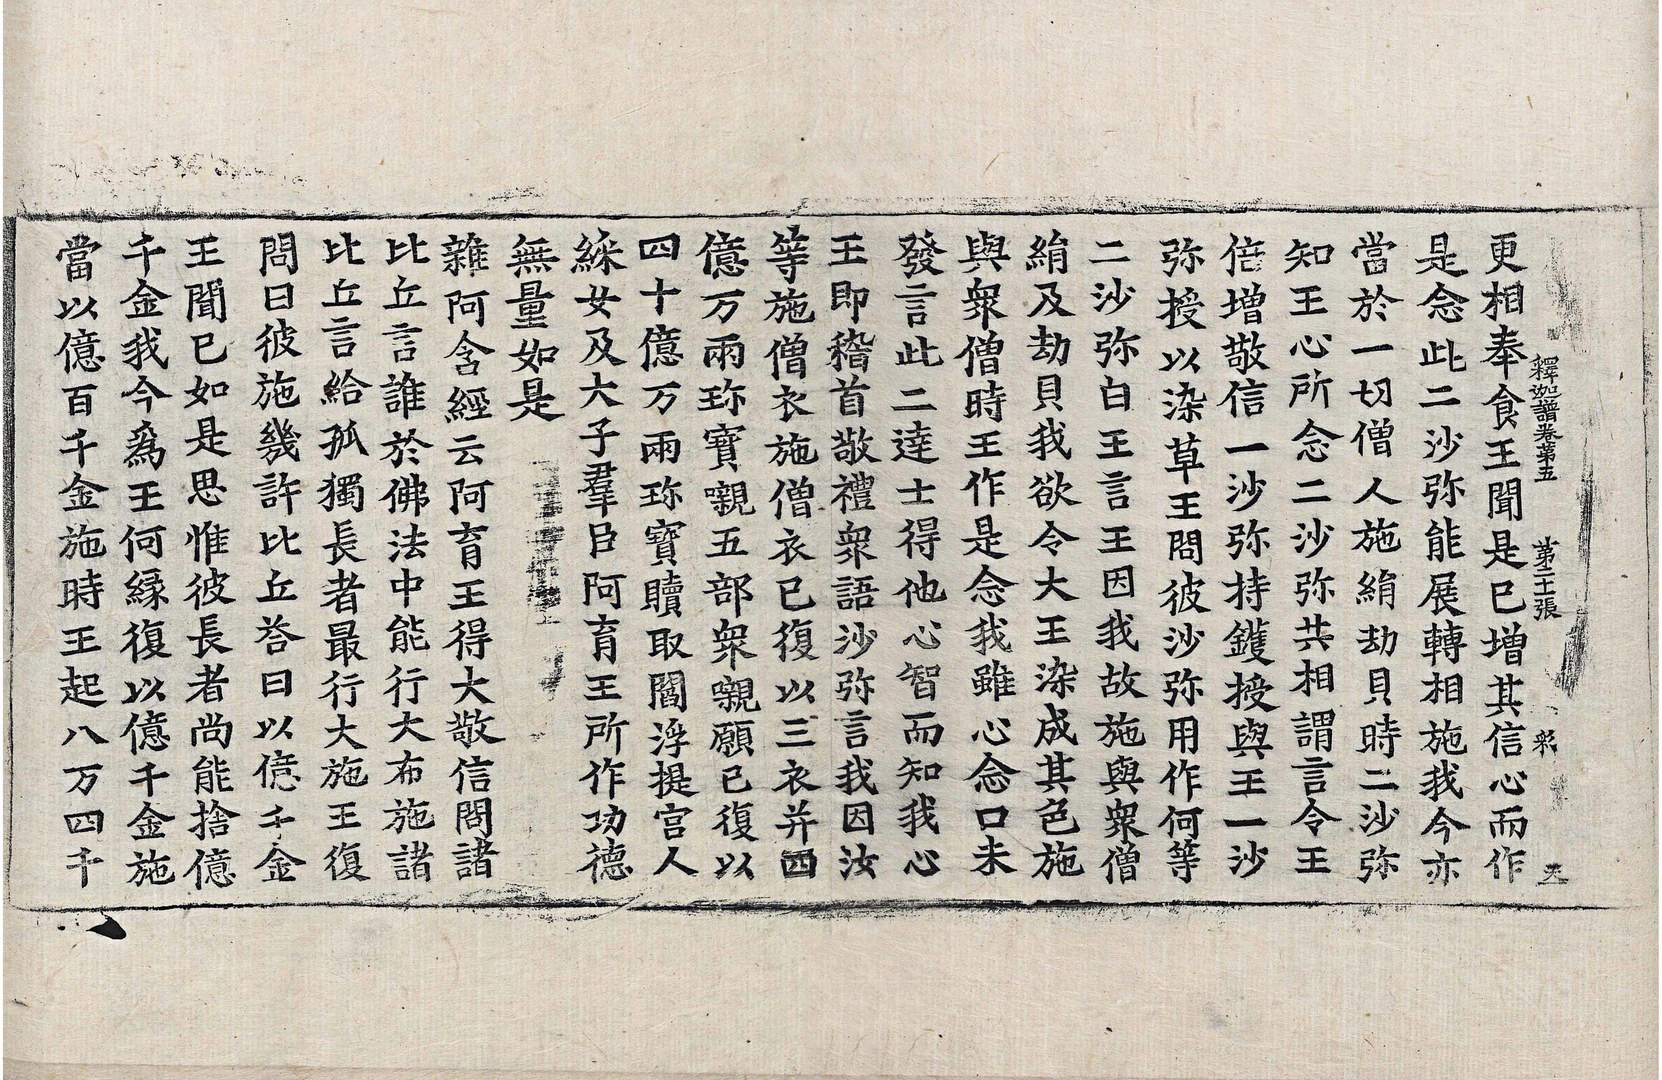 釋迦譜卷第五 第二十張 彩 天
更相奉食王聞是已增其信心而作
是念此二沙弥能展轉相施我今亦
當於一切僧人施絹劫貝時二沙弥
知王心所念二沙弥共相謂言令王
倍增敬信一沙弥持鑊授與王一沙
弥授以染草王問彼沙弥用作何等
二沙弥白王言王因我故施與衆僧
絹及劫貝我欲令大王染成其色施
與衆僧時王作是念我雖心念口未
發言此二達士得他心智而知我心
王即稽首敬禮衆語沙弥言我因汝
等施僧衣施僧衣已復以三衣并四
億万兩珎寶嚫五部衆嚫願已復以
四十億万兩珎寶贖取閻浮提宮人
婇女及大子羣臣阿育王所作功德
無量如是
雜阿含經云阿育王得大敬信問諸
比丘言誰於佛法中能行大布施諸
比丘言給孤獨長者最行大施王復
問曰彼施幾許比丘荅曰以億千金
王聞已如是思惟彼長者尚能捨億
千金我今爲王何緣復以億千金施
當以億百千金施時王起八万四千